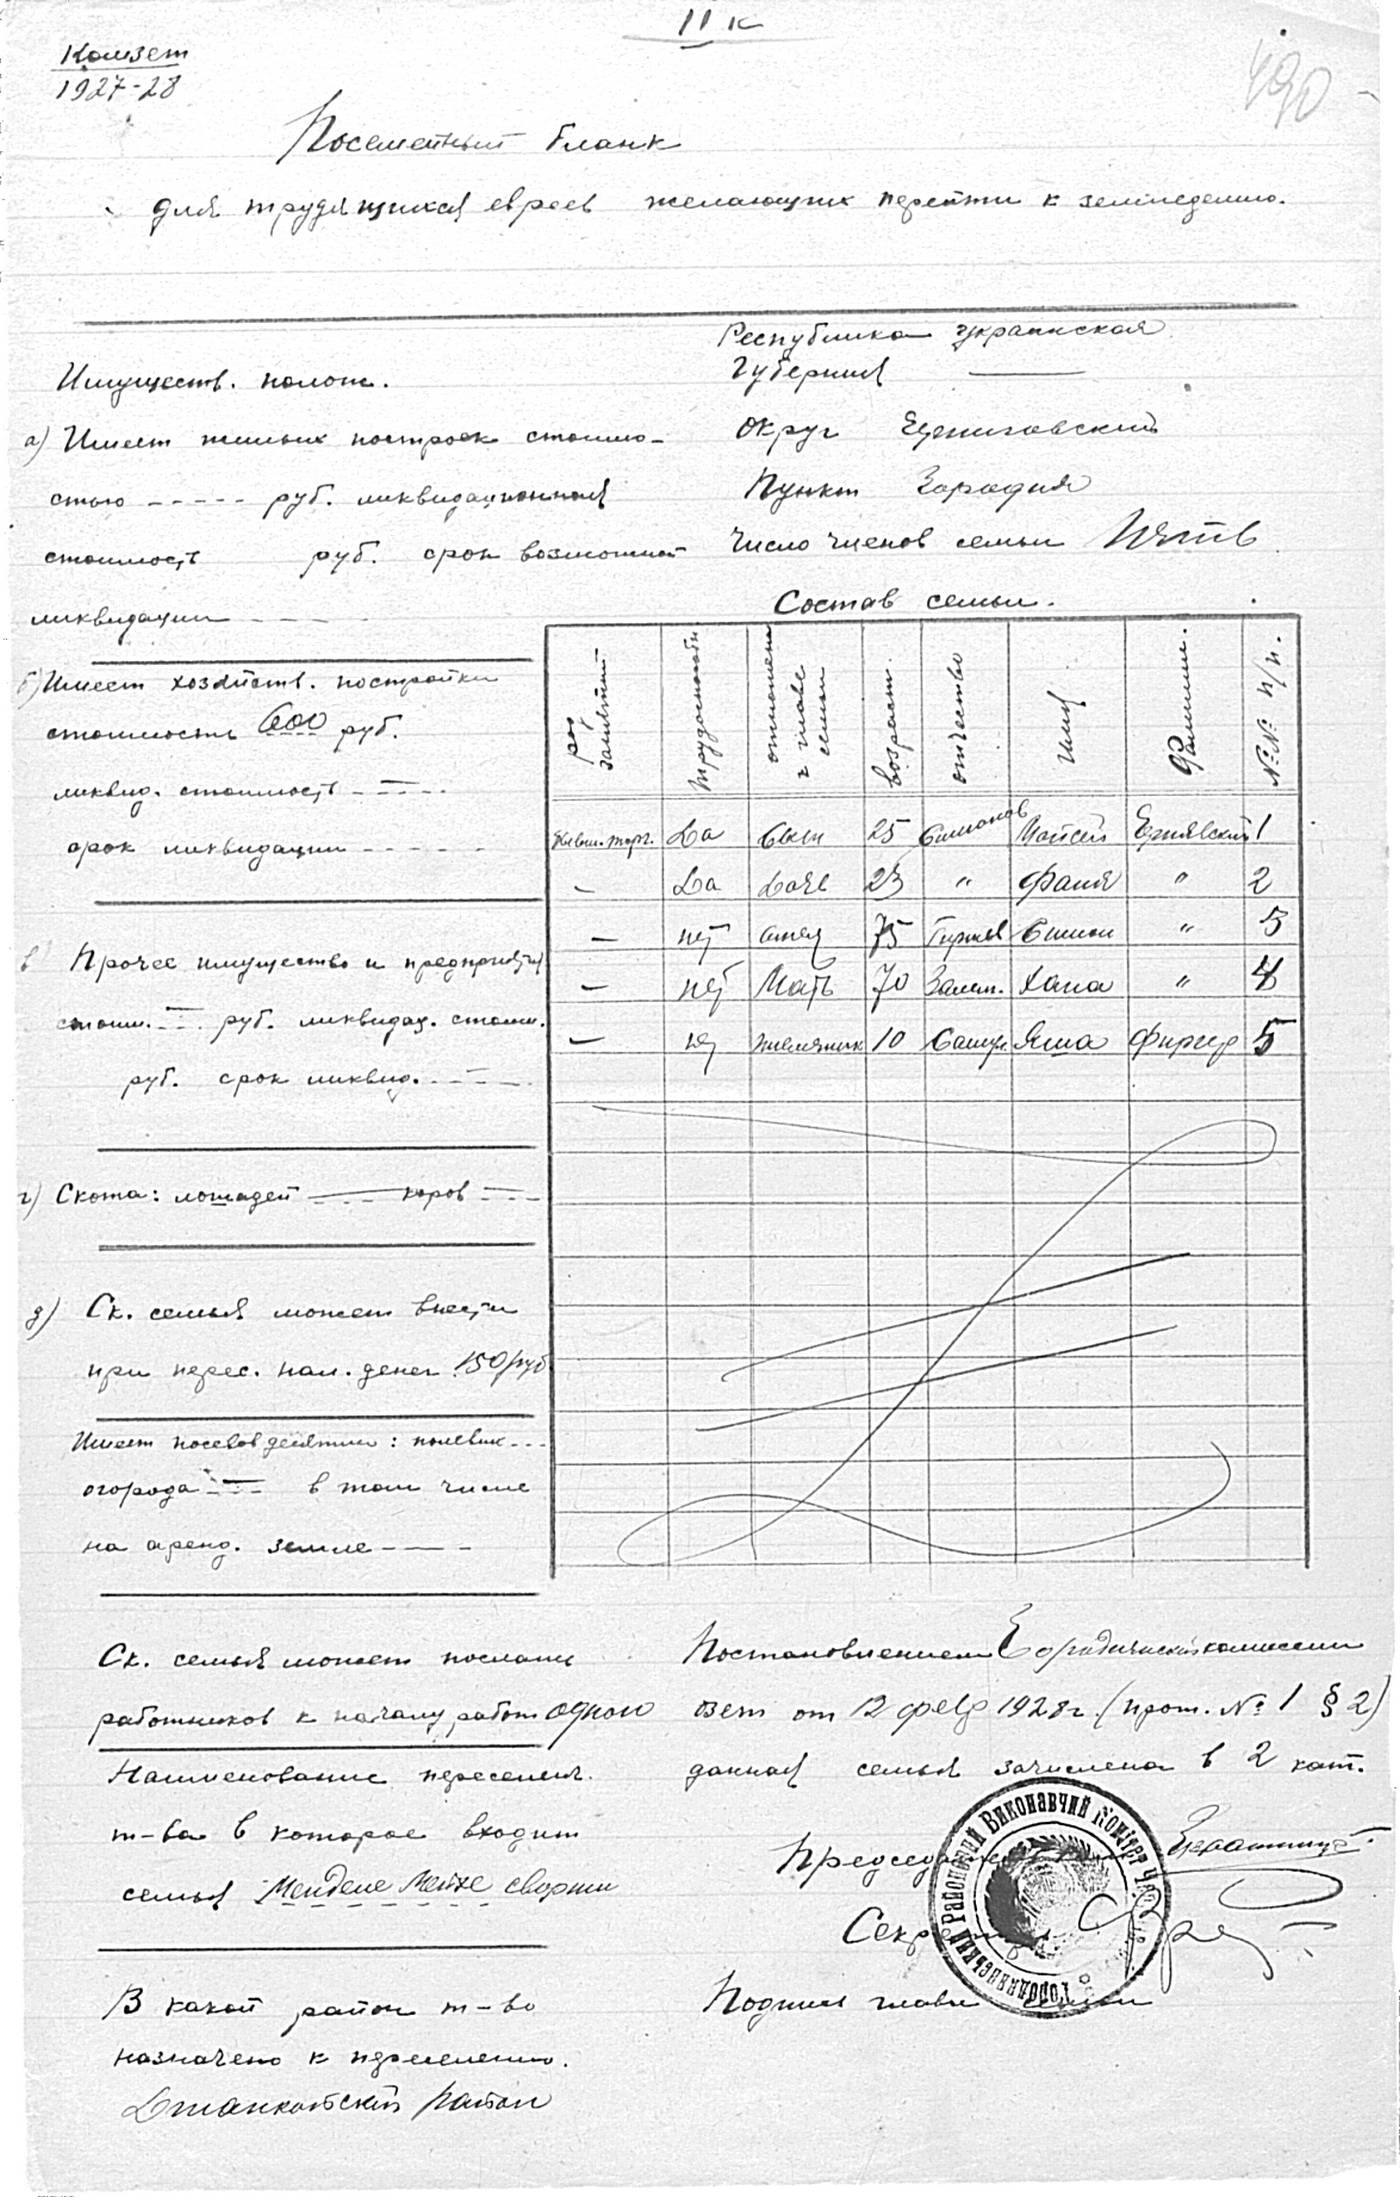 II к
Комзет
1927-28
490
Посемейный бланк
для трудящихся евреев желающих перейти к земледелию.
Республика Украинская
Губерния —
Округ Черниговский
Пункт Городня
Число членов семьи Пять
Имуществ. полож.
а) Имеет жилых построек стоимо-
стью ----- руб. ликвидационная
стоимость руб. срок возможной
ликвидации ----
б) Имеет хозяйств. постройки
стоимость 600 руб.
ликвид. стоимость ----
срок ликвидации ------
в Прочее имущество и предприятия
стоим. --- руб. ликвидац. стоим.
руб. срок ликвид. ----
г) Скота: лошадей ---- коров ---
д) Ск. семья может внести
при перес. нал. денег 150 руб
Имеет посевов десятин: полевых ---
огорода --- в том числе
на аренд. земле ----
Ск. семья может послать
работников к началу работ одного
Наименование переселен.
т-ва в которое входит
семья Менделе Мойхе сворим
В какой район т-во
назначено к переселению.
Джанкойский район
Состав семьи.
род занятий трудоспособн отношение к главе семьи возраст. отчество имя Фамилия. №№ п/п.
Да Сын 25 Симонов Мойсей 1
— Да Дочь 23 " Фаня " 2
— нет отец 75 Симон " 3
— нет Мать 70 Залм. Хана " 4
— нет племянник 10 Яша 5
Постановлением комиссии
Озет от 12 февр 1928 г. (прот. № 1 § 2)
данная семья зачислена в 2 кат.
Председатель
Секретарь
Подпись главы семьи
Городнянський Районовий Виконавчий Комітет